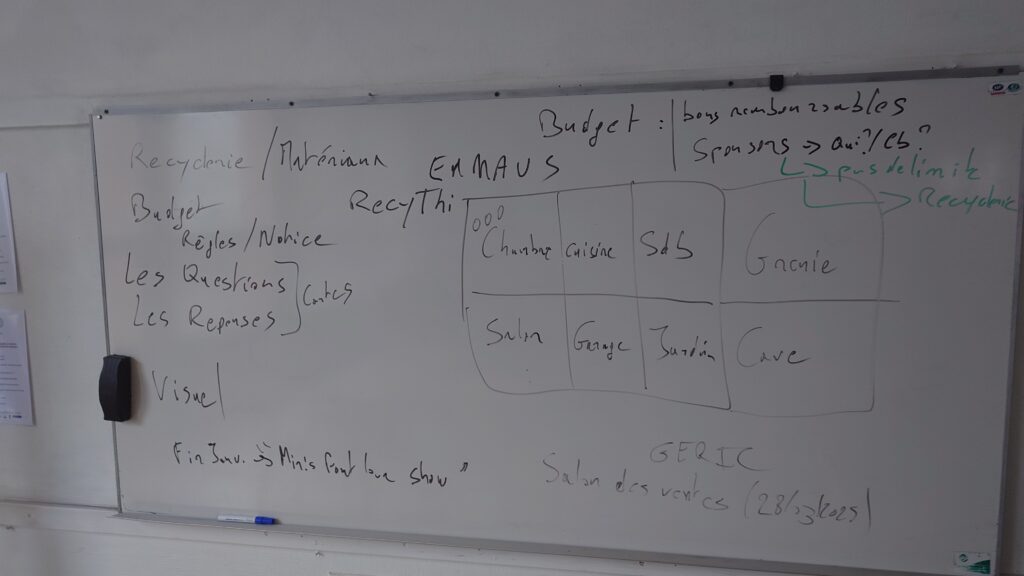 Recyclerie / Matériaux
Budget
Règles / Notice
Les Questions
Les Reponses
Cartes
Visuel
Fin Janv. => Minis font leur show"
Budget : bons remboursables
Sponsors => Qui? / Cb?
↳> pas de limite
-> Recyclerie
EMMAUS
RecyThi
Chambre cuisine SdB Grenie
Salon Garage Jardin Cave
GERIC
Salon des ventes (28/03/2025)